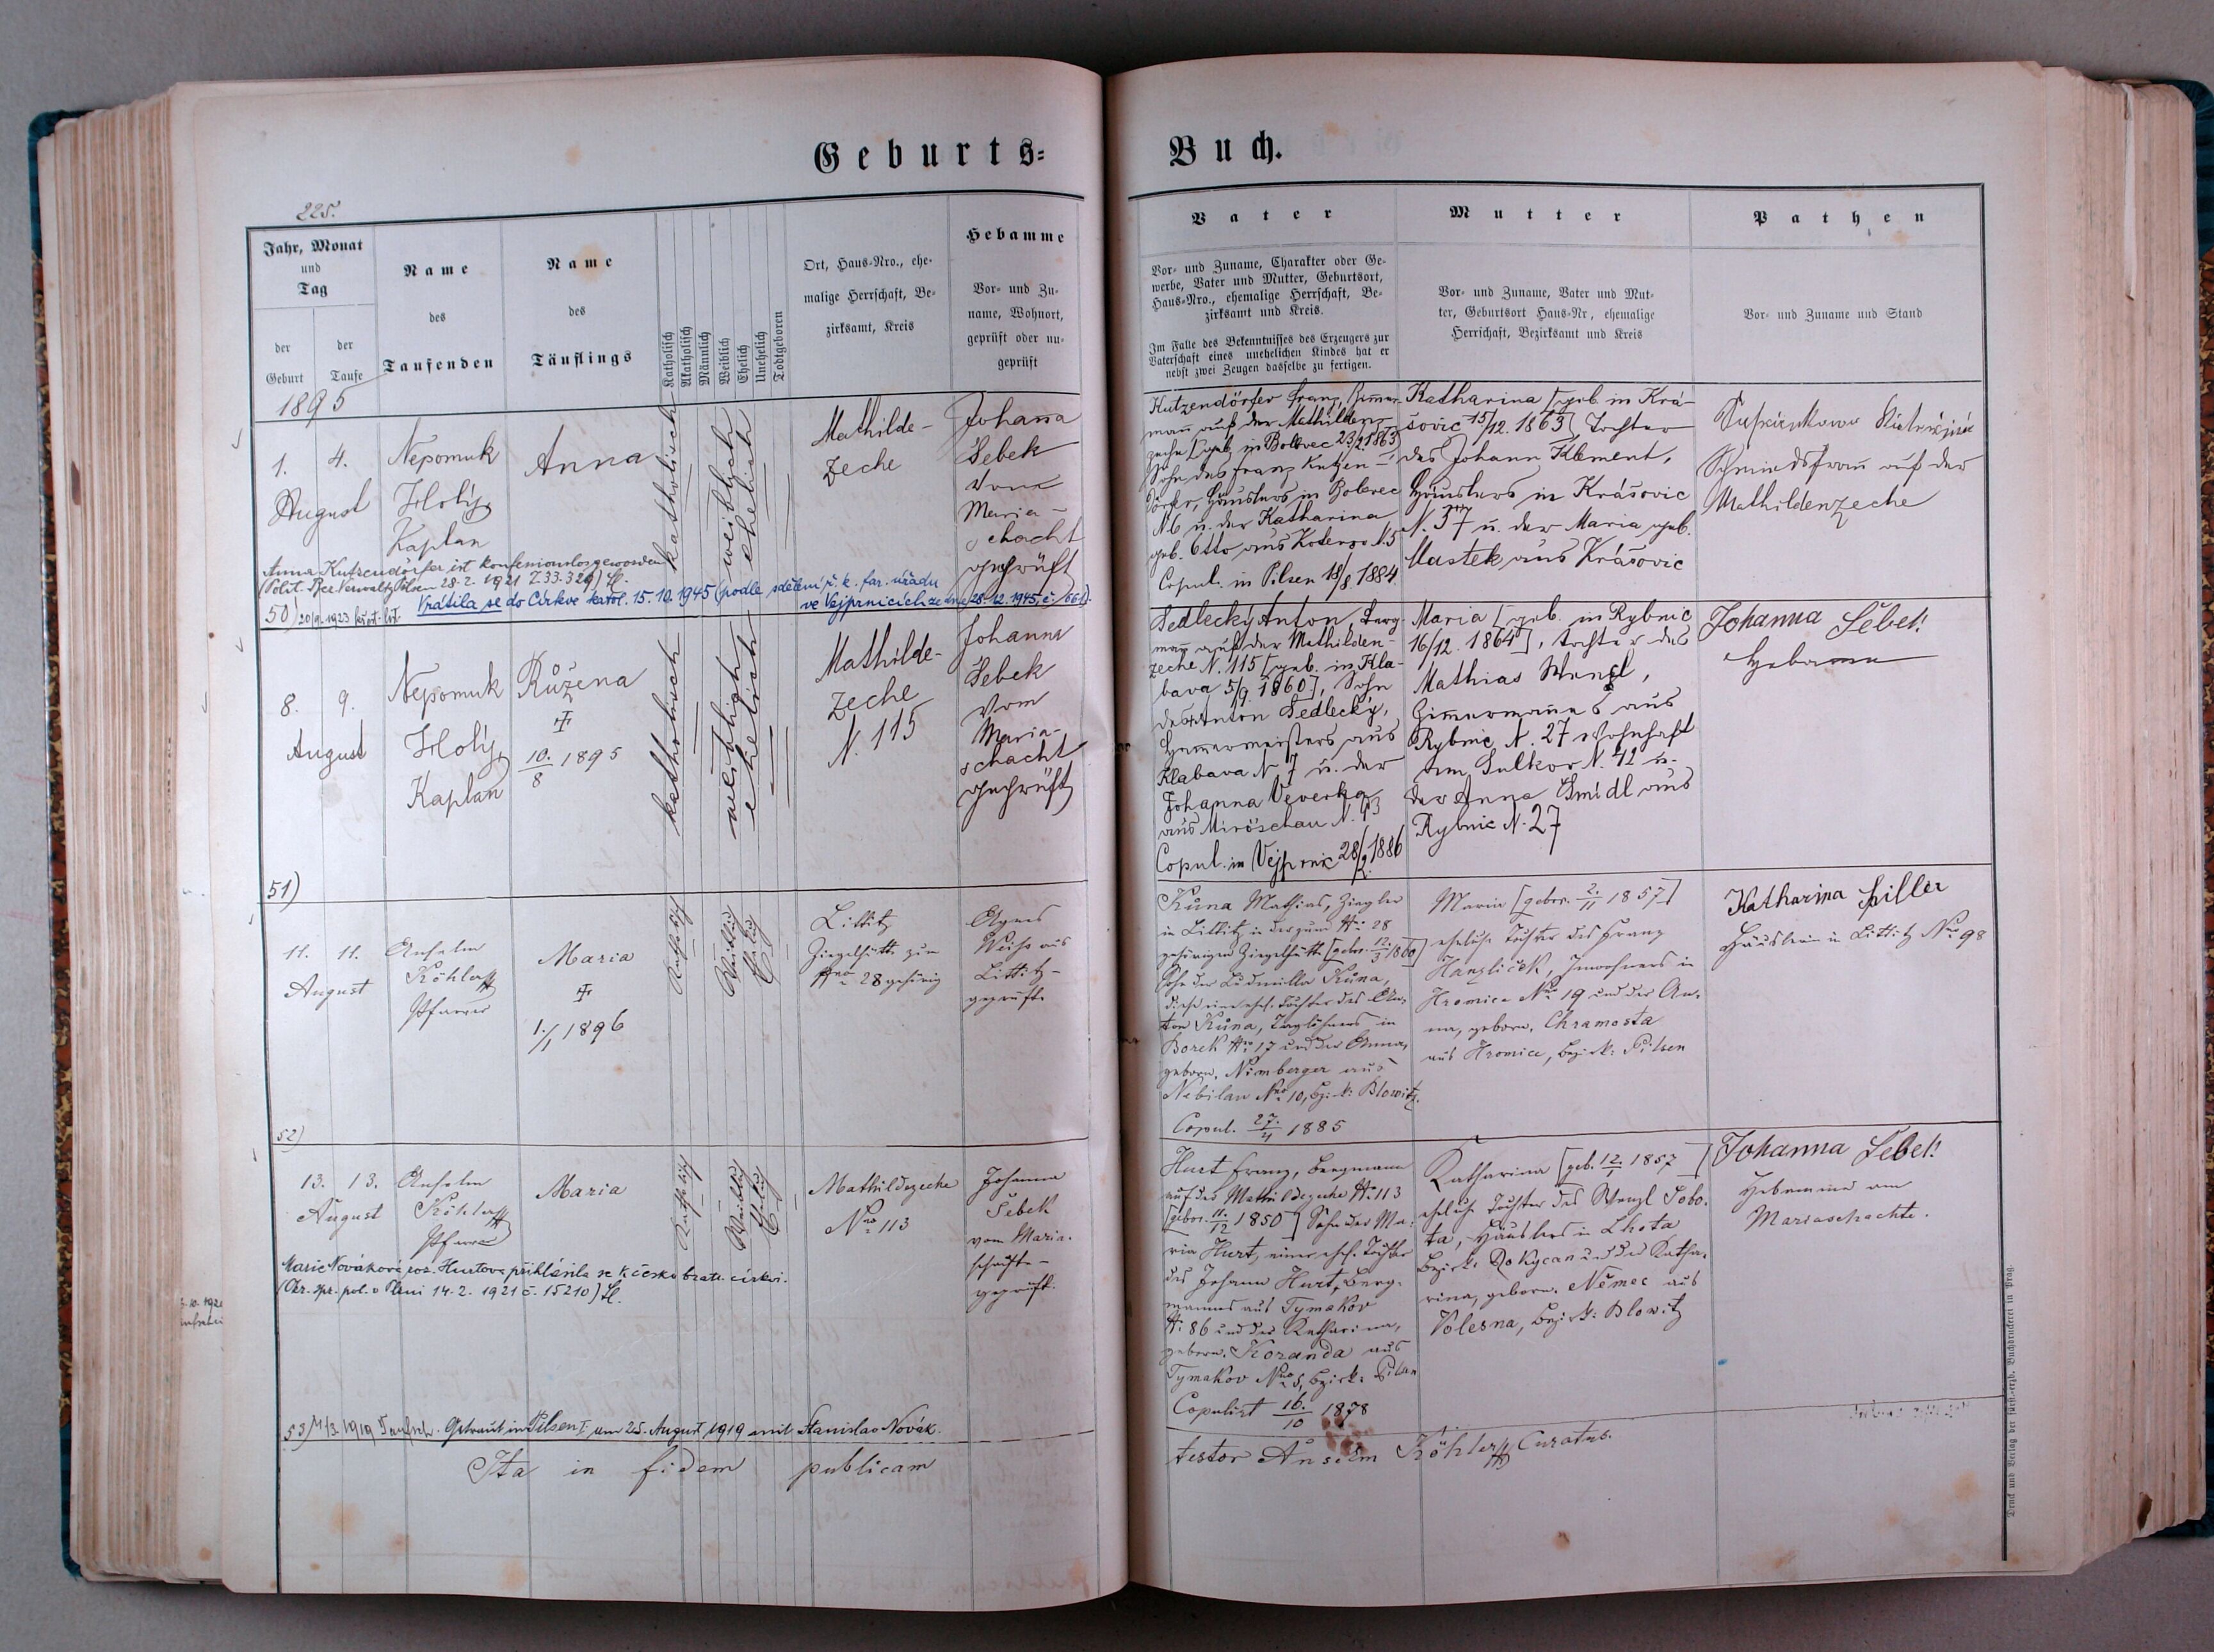 Geburts-
Buch.
225.
Jahr, Monat
und
Tag
der
Geburt
der
Taufe
Name
des
Taufenden
Name
des
Täuflings
Katholisch
Akatholisch
Männlich
Weiblich
Ehelich
Unehelich
Todtgeboren
Ort, Haus-Nro., ehe-
malige Herrschaft, Be-
zirksamt, Kreis
Hebamme
Vor- und Zu-
name, Wohnort,
geprüft oder un-
geprüft
Vater
Vor- und Zuname, Charakter oder Ge-
werbe, Vater und Mutter, Geburtsort,
Haus-Nro., ehemalige Herrschaft, Be-
zirksamt und Kreis.
Im Falle des Bekenntnisses des Erzeugers zur
Vaterschaft eines unehelichen Kindes hat er
nebst zwei Zeugen dasselbe zu fertigen.
Mutter
Vor- und Zuname, Vater und Mut-
ter, Geburtsort Haus-Nr, ehemalige
Herrschaft, Bezirksamt und Kreis
Pathen
Vor- und Zuname und Stand
1895
1. 4.
August
Nepomuk
Holý,
Kaplan
Anna
katholisch
weiblich
ehelich
Mathilde-
zeche
Johanna
Šebek
vom
Maria-
schacht
geprüft
Kutzendörfer Franz, Zimmer-
mann auf der Mathilden-
zeche [geb. in Bolevec 23/2 1863]
Sohn des Franz Kutzen-
dörfer, Häuslers in Bolevec
N. 6 u. der Katharina
geb. Otto aus Kotenzo N. 5
Copul. in Pilsen 18/8. 1884
Katharina [geb. in Krá-
šovic 15/12. 1863] Tochter
des Johann Klement,
Häuslers in Krášovic
N. 37 u. der Maria geb.
Mastek aus Krášovic
Schmiedsfrau auf der
Mathildenzeche
Anna Kutzendörfer ist konfessionslos geworden
(Polit. Bez. Verwalt. Pilsen 28.2. 1921 Z. 33.329)
Vrátila se do Církve katol. 15.10.1945 (podle sdělení ř. k. far. úřadu
ve Vejprnicích ze dne 28.12.1945, č. 661).
50) 20/9. 1923 křest. list.
8. 9.
August
Nepomuk
Holý,
Kaplan
Růžena
10./8 1895
katholisch
weiblich
ehelich
Mathilde-
zeche
N. 115
Johanna
Šebek
vom
Maria-
schacht
geprüft
Sedlecký Anton, Berg-
mann auf der Mathilden-
zeche N. 115 [geb. in Kla-
bava 5/9 1860], Sohn
des Anton Sedlecký,
Hammermeisters aus
Klabava N 7 u. der
Johanna Veverka
aus Miröschau N. 93
Copul. in Vejprnic 28/2. 1886
Maria [geb. in Rybnic
16/12. 1864], Tochter des
Mathias Wenzl,
Zimmermannes aus
Rybnic N. 27 wohnhaft
am Sulkov N. 42 u.
der Anna Šmídl aus
Rybnic N. 27
Johanna Šebek
Hebamme
51)
11. 11.
August
Anselm
Köhler
Pfarrer
Maria
1./1 1896
Katholisch
Weiblich
Ehelich
Littitz
Ziegelhütte zum
Nro 28 gehörig
Agnes
Weiss aus
Littitz -
geprüft.
Kůna Mathias, Ziegler
in Littitz in der zum N: 28
gehörigen Ziegelhütte [gebor. 12./3 1860]
Sohn der Ludmilla Kůna,
diese eine ehel. Tochter des An-
ton Kůna, Taglöhners in
Borek N: 17 und der Anna,
geborn. Nimberger aus
Nebilau Nro 10, Bezirk: Blowitz.
Copul. 27./4 1885
Maria [gebor. 2./11 1857]
eheliche Tochter des Franz
Hanzliček, Inwohners in
Hromice Nro 19 und der An-
na, geborn. Chramosta
aus Hromice, Bezirk: Pilsen
Katharina Hiller
Häuslerin in Littitz Nro 98
52)
13. 13.
August
Anselm
Köhler
Pfarrer
Maria
Katholisch
Weiblich
Ehelich
Mathildezeche
Nro 113
Johanna
Šebek
vom Maria-
schachte -
geprüft.
Hurt Franz, Bergmann
auf der Mathildezeche N: 113
[gebor. 11./12 1850] Sohn der Ma-
ria Hurt, einer ehel. Tochter
des Johann Hurt, Berg-
mannes aus Tymakov
N: 86 und der Katharina,
geborn. Koranda aus
Tymakov Nro 5, Bezirk: Pilsen
Copulirt 16./10 1878
Katharina [geb. 12./1 1857]
eheliche Tochter des Wenzl Sobo-
ta, Häuslers in Lhota
Bezirk: Rokycan und der Katha-
rina, geborn. Němec aus
Volesna, Bezirk: Blowitz
Johanna Šebek
Hebamme am
Mariaschachte.
Marie Nováková roz. Hurtova přihlásila se k česko bratr. církvi.
(Okr. spr. pol. v Plzni 14.2. 1921 č. 15210)
53) 11/3 1919 Taufsch. Getraut in Pilsen I am 25. August 1919 mit Stanislav Novák.
Ita in fidem publicam
testor Anselm Köhler Curatus.
Druck und Verlag der fürst.-erzb. Buchdruckerei in Prag.